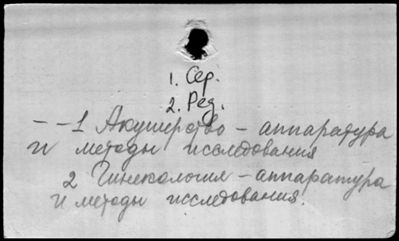 1. Сер.
2. Ред.
– – 1 Акушерство – аппаратура
и методы исследования
2 Гинекология – аппаратура
и методы исследования.